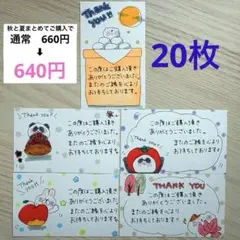 秋と夏まとめてご購入で
通常 660円
↓
640円
20枚
THANK
YOU!!
この度はご購入頂き
ありがとうございました。
またのご縁を心より
お待ちしております。
Thank you!
この度はご購入頂き
ありがとうございました。
またのご縁を心より
お待ちしております。
この度はご購入頂き
ありがとうございました。
またのご縁を心より
お待ちしております。
Thank you!!
この度はご購入頂き
ありがとうございました。
またのご縁を心より
お待ちしております。
THANK YOU
この度はご購入頂き
ありがとうございました。
またのご縁を心より
お待ちしております。